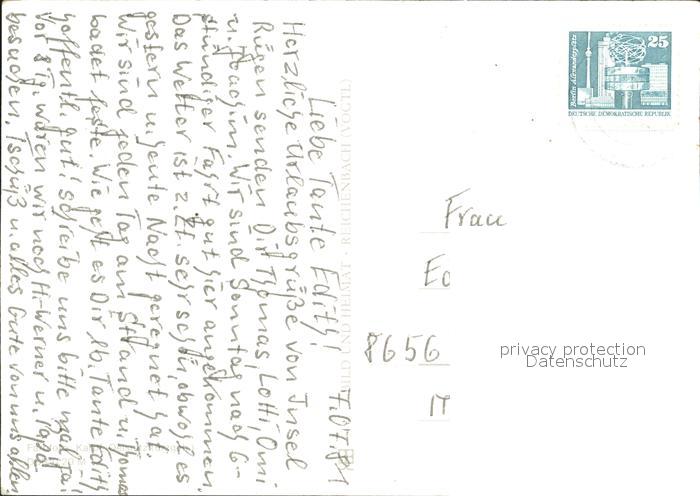 7.07.81
Liebe Tante Edith!
Herzliche Urlaubsgrüße von Insel
Rügen senden Dir Thomas, Lotti, Omi
u. Joachim. Wir sind Sonntag nach 6-
stündiger Fahrt gut hier angekommen.
Das Wetter ist z. Zt. sehr schön, obwohl es
gestern u. heute Nacht geregnet hat.
Wir sind jeden Tag am Strand u. Thomas
badet feste. Wie geht es Dir lb. Tante Edith
hoffentl. gut! Schreibe uns bitte mal ja!
Vor 8 Tg. waren wir noch Werner u. Papa
besuchen. Tschüß u. alles Gute von uns allen
BILD UND HEIMAT · REICHENBACH (VOGTL)
25
Berlin, Alexanderplatz
DEUTSCHE DEMOKRATISCHE REPUBLIK
Frau
Ed
8656
privacy protection
Datenschutz